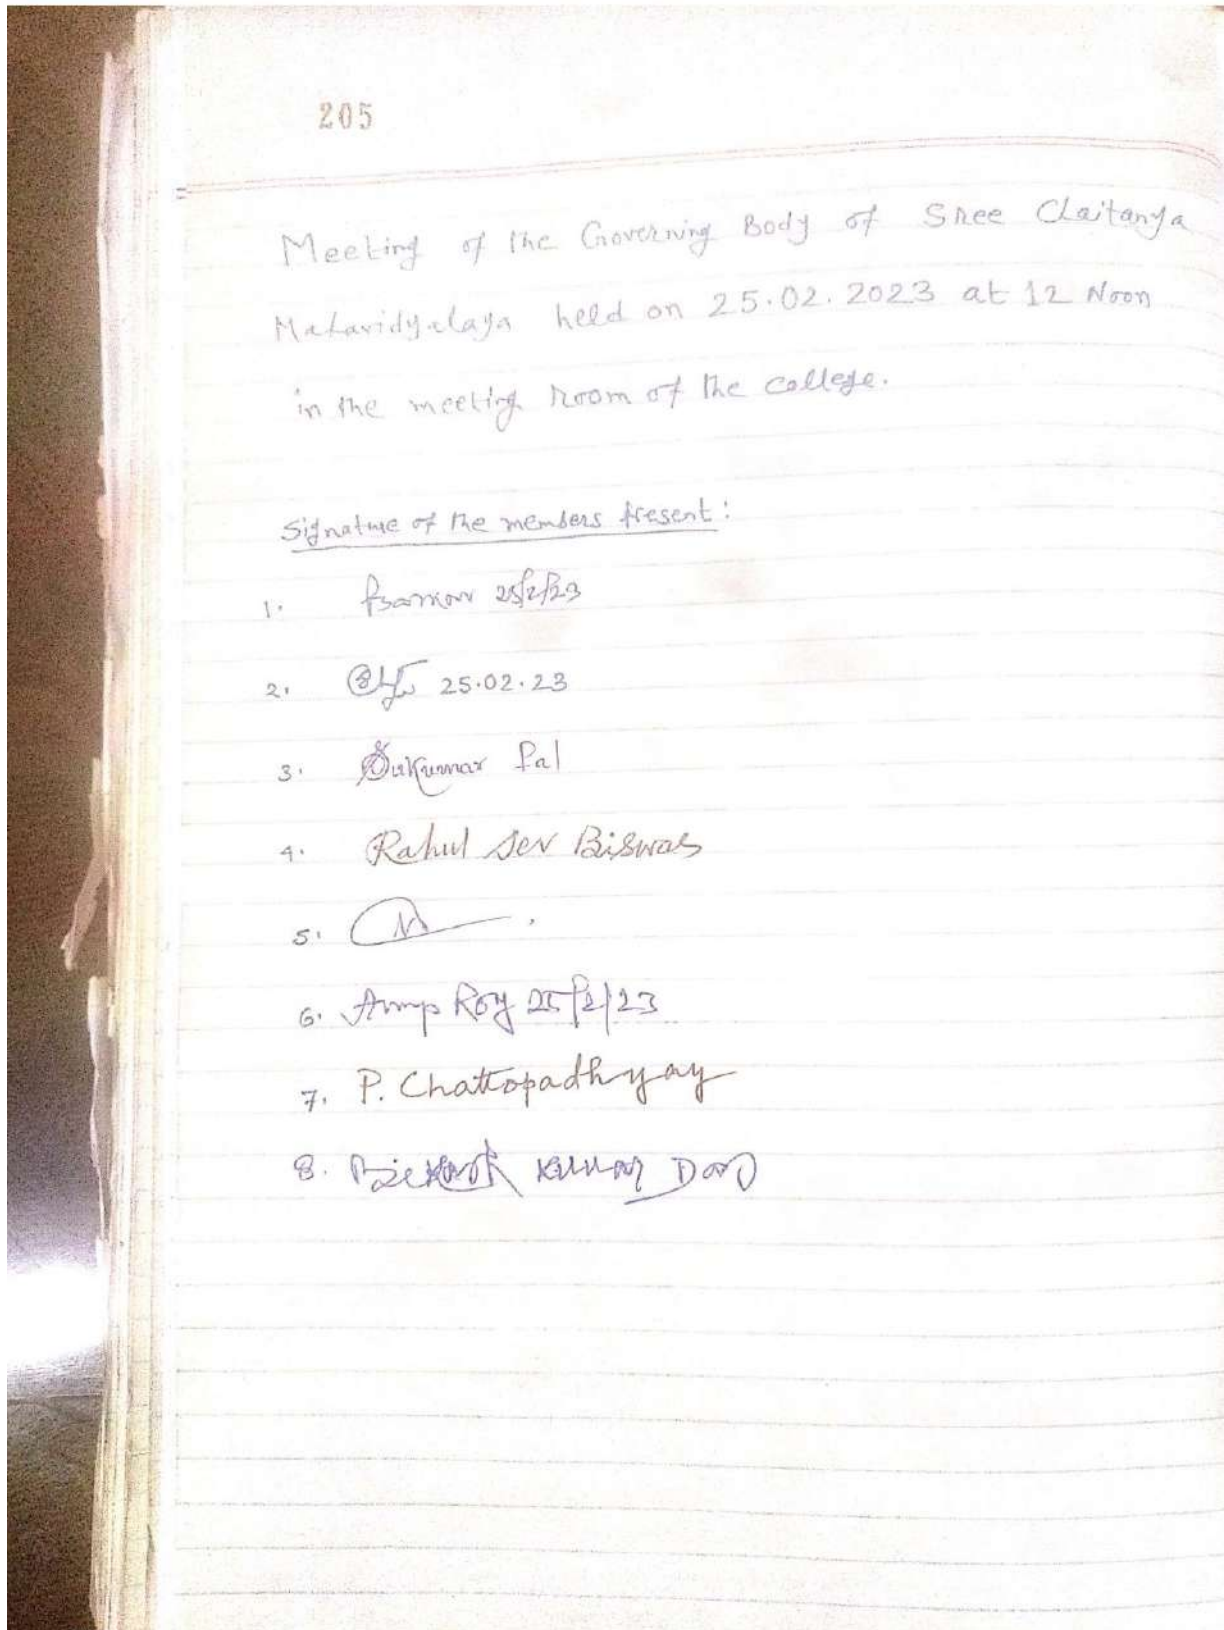 205
Meeting of the Governing Body of Sree Chaitanya
Mahavidyalaya held on 25.02.2023 at 12 Noon
in the meeting room of the college.
Signature of the members present:
1. 25/2/23
2. 25.02.23
3. Sukumar Pal
4. Rahul Dev Biswas
5.
6. Anup Roy 25/2/23
7. P. Chattopadhyay
8. Kumar Das